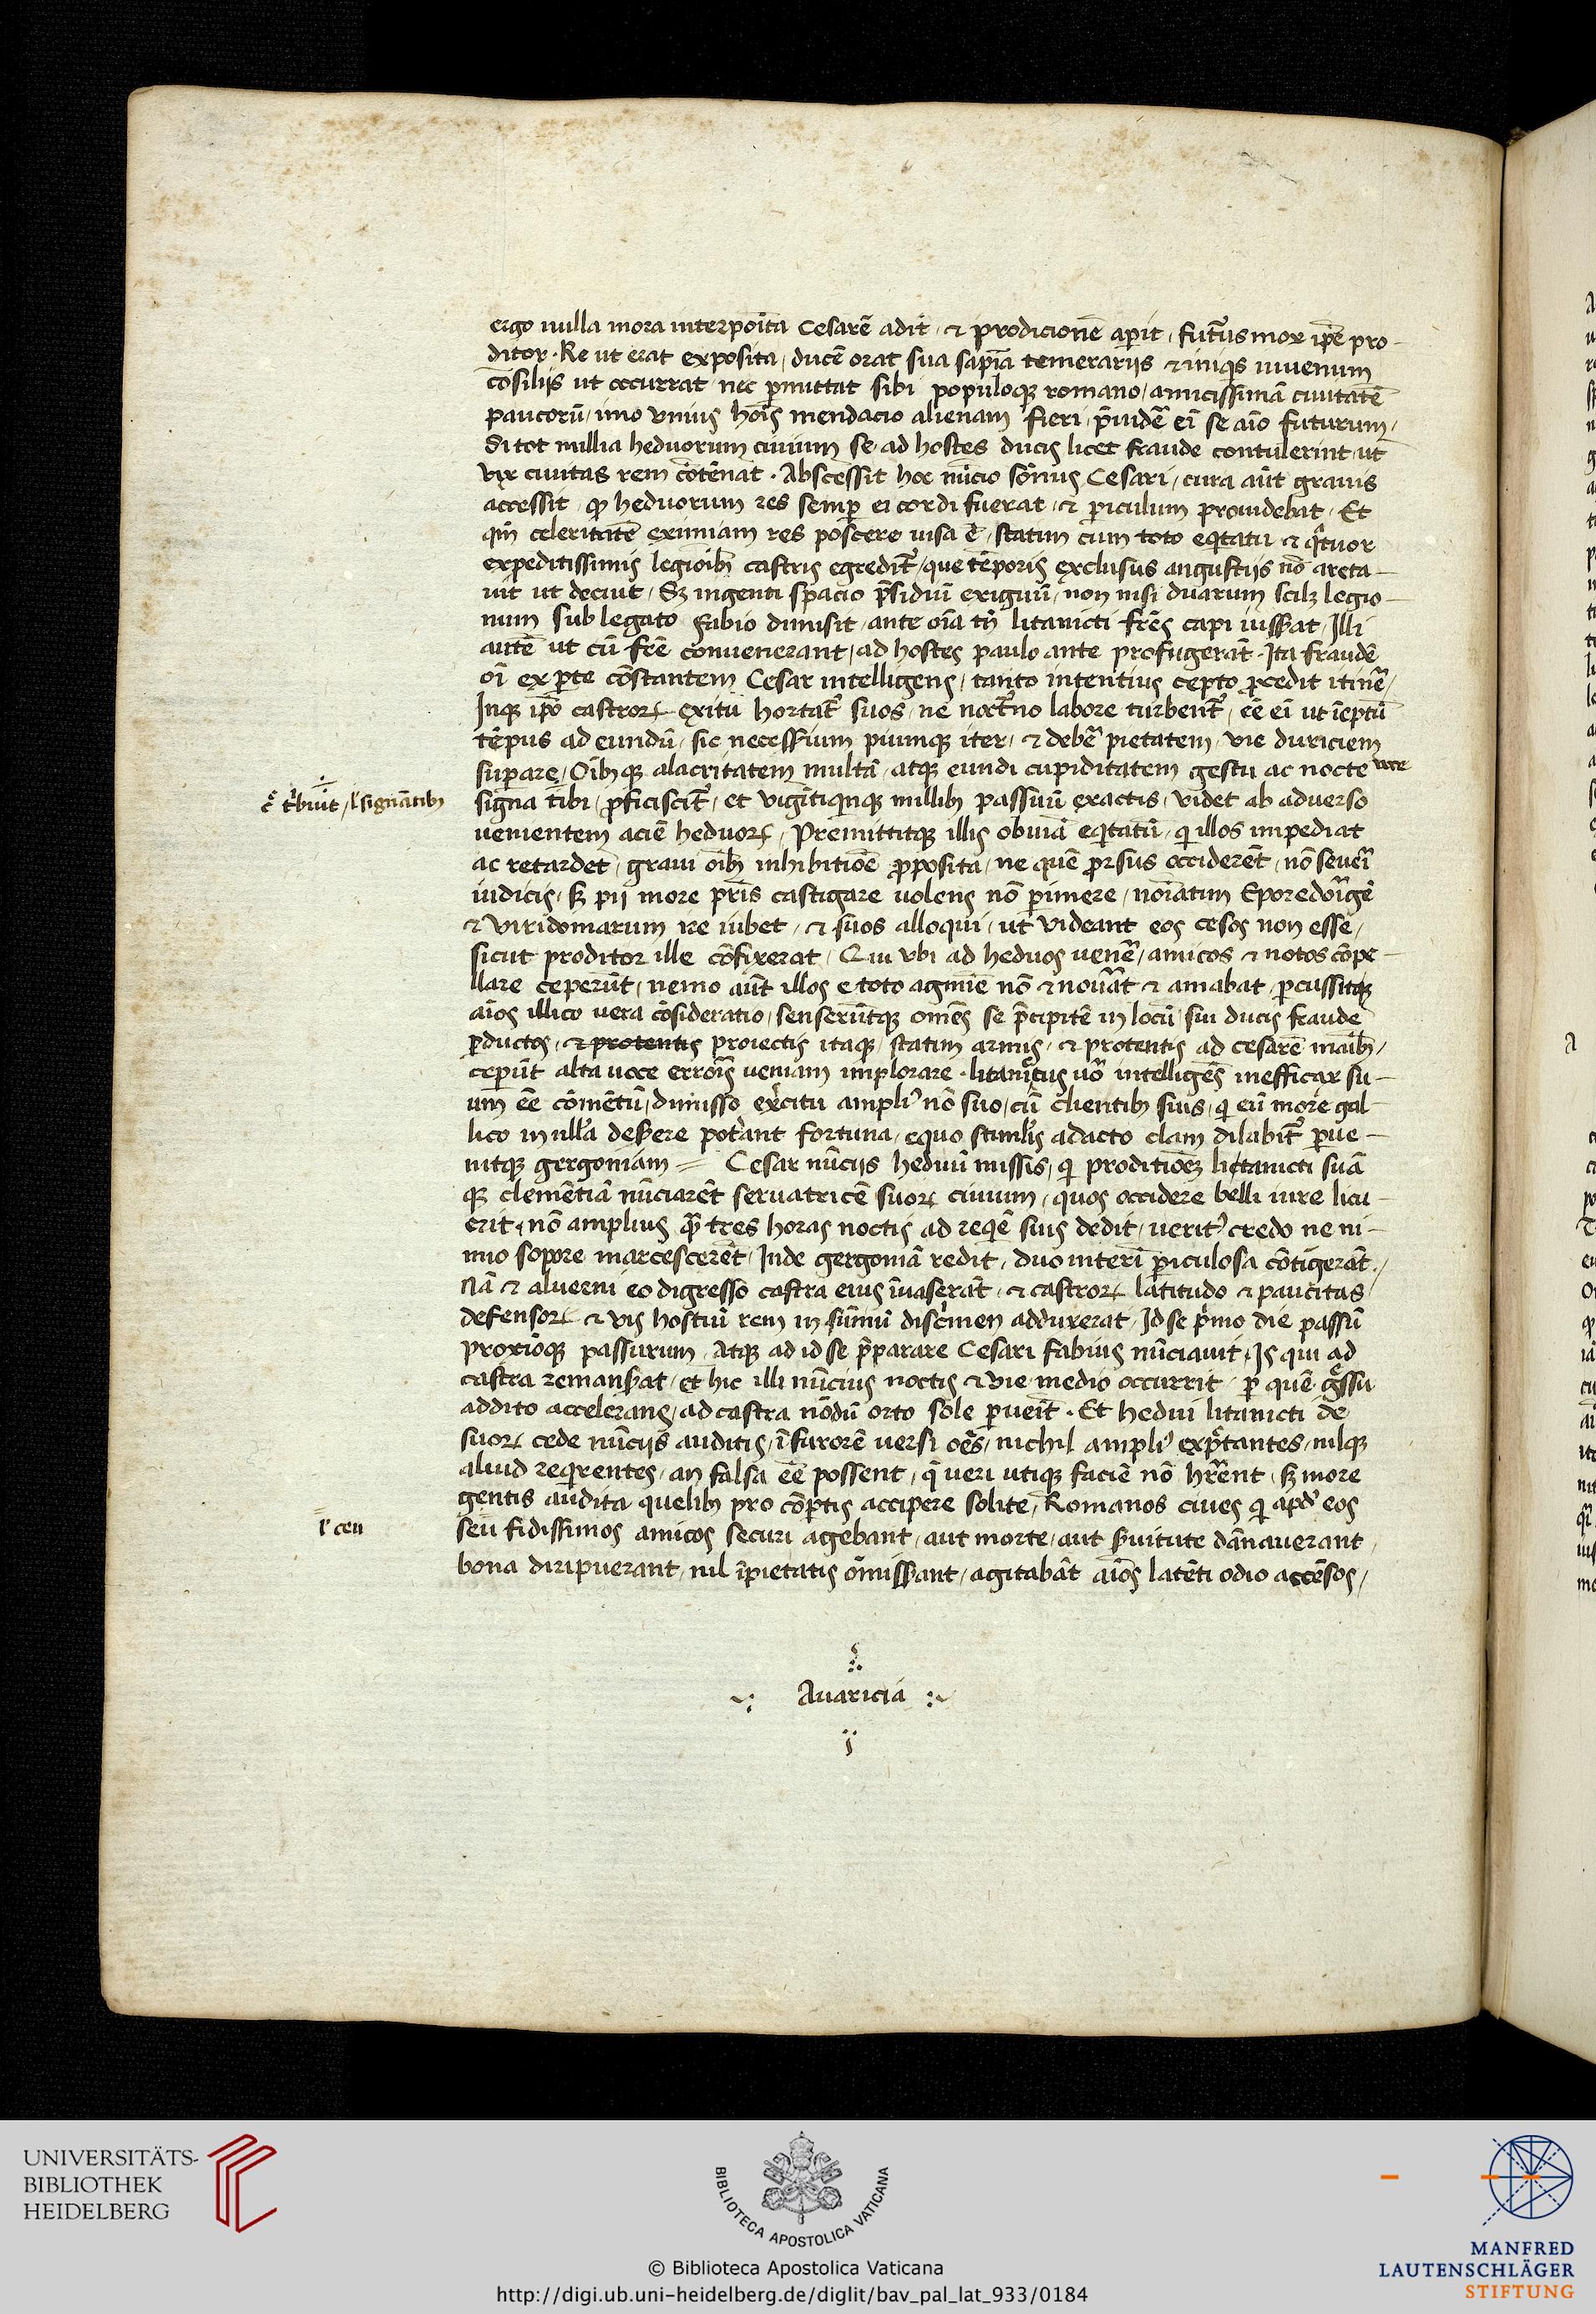 ergo nulla mora interpoīta Cesarē adit / ⁊ prodicionē aꝑit / fut᷑us mox ip̄e pro-
ditor · Re ut erat exposita / ducē orat sua sapīa temerarijs ⁊ iniqͥs iuuenum
cōsilijs ut occurrat nec ꝑmittat sibi populoqꝫ romano / amicissimā ciuitatē
paucorū / imo vnius hoīs mendacio alienam fieri /
Si tot millia heduorum ciuium se ad hostes ducis licet fraude contulerint ut
vix ciuitas rem cōtēnat · Abscessit hoc nūcio sōnus Cesari / cura aūt grauis
accessit / ꝙ heduorum res semꝑ ei cordi fuerat / ⁊ ꝑiculum prouidebat / Et
qm̄ celeritatē eximiam res poscere uisa ē / statim cum toto eqͥtatu ⁊ qͣtuor
expeditissimis legioībꝫ castris egredit᷑ / que tēporis exclusus angustijs nō areta-
uit ut decuit / Sꝫ ingenti spacio p̄sidiū exiguū / non nisi duarum scilꝫ legio-
num sub legato Fabio dimisit / ante oīa tn̄ litauicti fr̄es capi iusserat / Illi
autē ut cū fr̄e conuenerant / ad hostes paulo ante profugerāt · Ita fraudē
oī ex ꝑte cōstantem Cesar intelligens / tanto intentius cepto ꝓcedit itine᷑ /
Inqꝫ ip̄o castroꝝ exitu hortat᷑ suos / ne noct᷑no labore turbent᷑ / eē ei ut īeptū
tēpus ad eundū / sic necessium piumqꝫ iter / ⁊ debe᷑ pietatem / vie duriciem
suꝑare / Oībꝫqꝫ alacritatem multā / atqꝫ eundi cupiditatem gestu ac nocte voce
signa tibi / ꝓficiscit᷑ / et vigītiqͥnqꝫ millibꝫ passuū exactis / videt ab aduerso
uenientem aciē heduoꝝ / Premittitqꝫ illis obuiā eqͥtatū / qͥ illos impediat
ac retardet / graui oībꝫ inhibitiōe ꝓposita / ne quē prorsus occiderēt / nō seueri
iudicis / sꝫ pij more pr̄is castigare uolens nō ꝑimere / noīatim Eporedorigē
⁊ viridomarum ire iubet / ⁊ suos alloqui / ut videant eos cesos non esse /
sicut proditor ille cōfixerat / Qui vbi ad heduos uene᷑ / amicos ⁊ notos cōpe-
llare ceperūt / nemo aūt illos e toto agmīe nō ⁊ nouerat ⁊ amabat / ꝑcussitqꝫ
aīos illico uera cōsideratio / senserūtqꝫ omēs se p̄cipitē in locū sui ducis fraude
ꝑductos / ⁊ protentis proiectis itaqꝫ statim armis / ⁊ protentis ad cesarē maībꝫ /
ceperūt alta uoce erroīs ueniam implorare · litauictus uō intelligēs inefficax su-
um eē cōmētū / dimisso exͤcitu ampliꝰ nō suo / cū clientibꝫ suis / qͥ eū more gal-
lico in ull̄a deserere poterant fortuna / equo stimlis adacto clam dilabit᷑ ꝑue-
nitqꝫ gergoniam = Cesar nūcijs heduū missis / qͥ proditiōeꝫ litauicti suā
qꝫ clemētiā nūciarēt seruatricē suoꝝ ciuium / quos occidere belli iure licu-
erit / nō amplius qͣ̄ tres horas noctis ad reqͥē suis dedit / ueritꝰ credo ne ni-
mio sopore marcescerēt / Inde gergoniā redit / duo interī ꝑiculosa cōtigerāt · /
Nā ⁊ aluerni eo digresso castra eius īuaserāt / ⁊ castroꝝ latitudo ⁊ paucitas
defensoꝝ ⁊ vis hostiū rem in sūmū discͥmen adduxerat / Id se pͥmo die passū
proxīoqꝫ passurum / Atqꝫ ad id se p̄ꝑarare Cesari Fabius nūciauit / Is qui ad
castra remanserat / et hic illi nūcius noctis ⁊ vie medio occurrit / ꝑ quē gͤssu
addito accelerans / ad castra nōdū orto sole ꝑueīt · Et hedui litauicti de
suoꝝ cede nūcijs auditis / ī furorē uersi oēs / nichil ampliꝰ expͤctantes / nilqꝫ
aliud reqͥrentes / an falsa eē possent / qͤ ueri utiqꝫ faciē nō hr̄ent / sꝫ more
gentis audita quelibꝫ pro cōꝑtis accipere solite / Romanos ciues qͥ apdꝰ eos
seu fidissimos amicos securi agebant / aut morte / aut seruitute dānauerant /
bona diripuerant / nil īpietatis omiserant / agitabāt aīos latēti odio accēsos /
l' signātibꝫ
l' ceu
Auaricia
UNIVERSITÄTS-
BIBLIOTHEK
HEIDELBERG
BIBLIOTECA APOSTOLICA VATICANA
© Biblioteca Apostolica Vaticana
http://digi.ub.uni-heidelberg.de/diglit/bav_pal_lat_933/0184
MANFRED
LAUTENSCHLÄGER
STIFTUNG